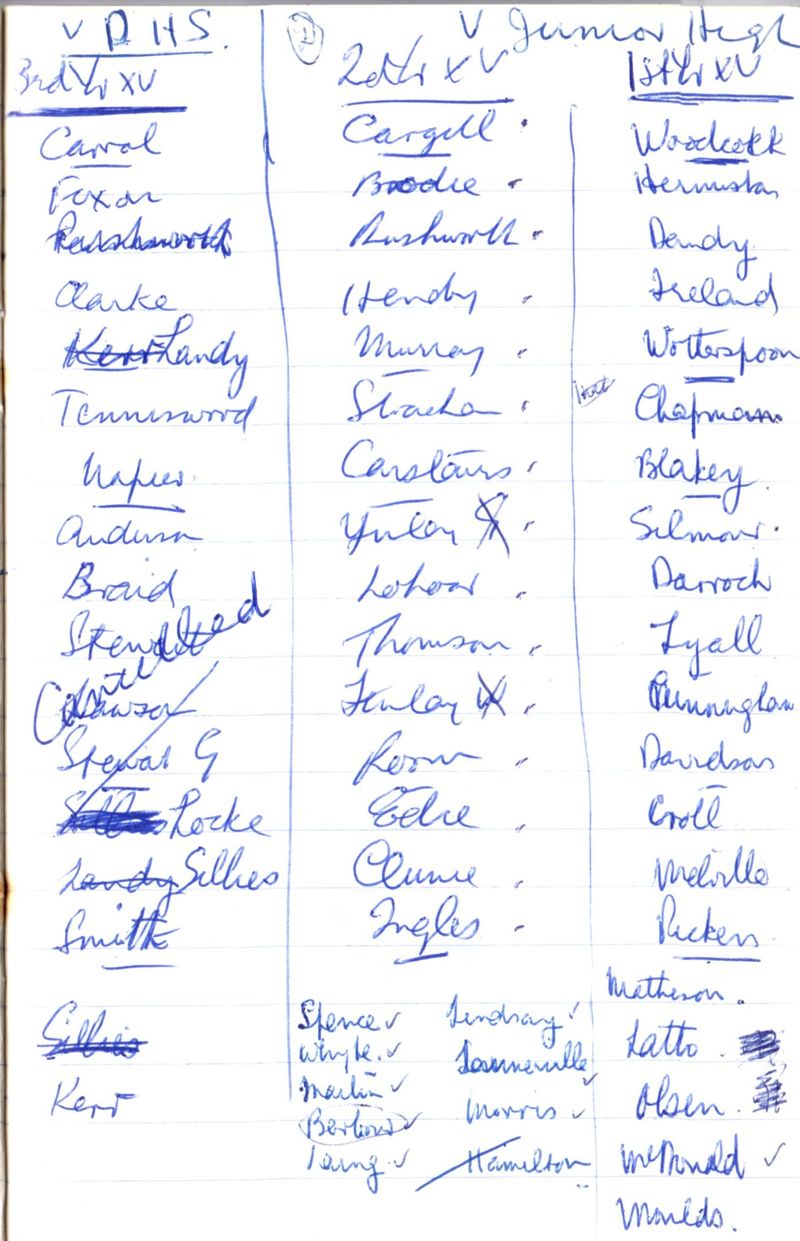 v D HS.
3rd Yr XV
Carrol
Foxon
Rushworth
Clarke
Kerr Landy
Tenniswood
Napier
Anderson
Braid
Stewart
Cancelled
Dawson
Stewart G
Locke
Landy Gillies
Smith
Gillies
Kerr
2
2d Yr XV
Cargill
Brodie
Rushworth
Hendry
Murray
Strachan
Carstairs
Yuley
Lohoar
Thomson
Finlay
Room
Edie
Clunie
Ingles
Spence ✓
Whyte ✓
Martin ✓
✓
Laing ✓
Lindsay
Morris ✓
Hamilton
v Junior High
1st Yr XV
Woodcock
Hermiston
Dandy
Ireland
Wotterspoon
Chapman
Blakey
Gilmour
Darroch
Lyall
Cunningham
Davidson
Croll
Melville
Pickens
Matheson
Latto
Olsen
McDonald ✓
Moulds.